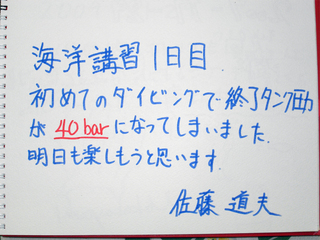 海洋講習1日目
初めてのダイビングで終了タンク圧力
が 40barになってしまいました。
明日も楽しもうと思います。
佐藤 道夫